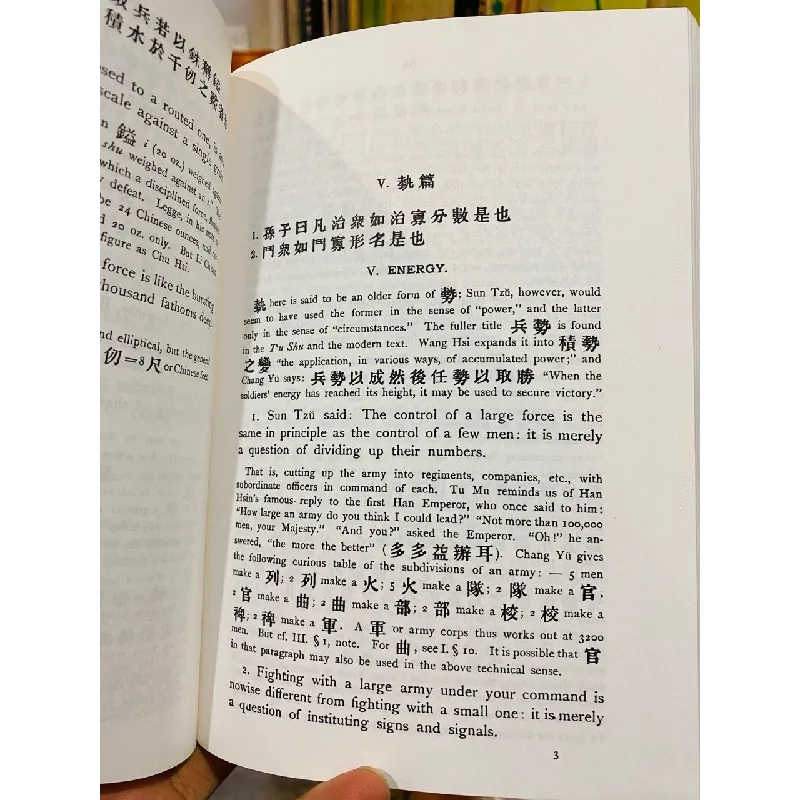 積水於千仞之
esed to a routed one, is as
scale against a single grain
n 鎰 i (20 oz.) weighed against
shu weighed against an
which a disciplined force,
y defeat. Legge, in his
be 24 Chinese ounces, and
d 20 oz. only. But Li
figure as Chu Hsi.
force is like the bursting
thousand fathoms deep.
nd elliptical, but the general
仞＝8 尺 or Chinese feet.
V. 埶篇
1. 孫子曰凡治衆如治寡分數是也
2. 鬥衆如鬥寡形名是也
V. ENERGY.
埶 here is said to be an older form of 勢; Sun Tzŭ, however, would
seem to have used the former in the sense of “power,” and the latter
only in the sense of “circumstances.” The fuller title 兵勢 is found
in the T‘u Shu and the modern text. Wang Hsi expands it into 積勢
之變 “the application, in various ways, of accumulated power;” and
Chang Yü says: 兵勢以成然後任勢以取勝 “When the
soldiers’ energy has reached its height, it may be used to secure victory.”
1. Sun Tzŭ said: The control of a large force is the
same in principle as the control of a few men: it is merely
a question of dividing up their numbers.
That is, cutting up the army into regiments, companies, etc., with
subordinate officers in command of each. Tu Mu reminds us of Han
Hsin’s famous reply to the first Han Emperor, who once said to him:
“How large an army do you think I could lead?” “Not more than 100,000
men, your Majesty.” “And you?” asked the Emperor. “Oh!” he an-
swered, “the more the better” (多多益辦耳). Chang Yü gives
the following curious table of the subdivisions of an army: — 5 men
make a 列; 2 列 make a 火; 5 火 make a 隊; 2 隊 make a 官,
2 官 make a 曲; 2 曲 make a 部; 2 部 make a 校; 2 校 make a
裨; 2 裨 make a 軍. A 軍 or army corps thus works out at 3200
men. But cf. III. § 1, note. For 曲, see I. § 10. It is possible that 官
in that paragraph may also be used in the above technical sense.
2. Fighting with a large army under your command is
nowise different from fighting with a small one: it is merely
a question of instituting signs and signals.
3